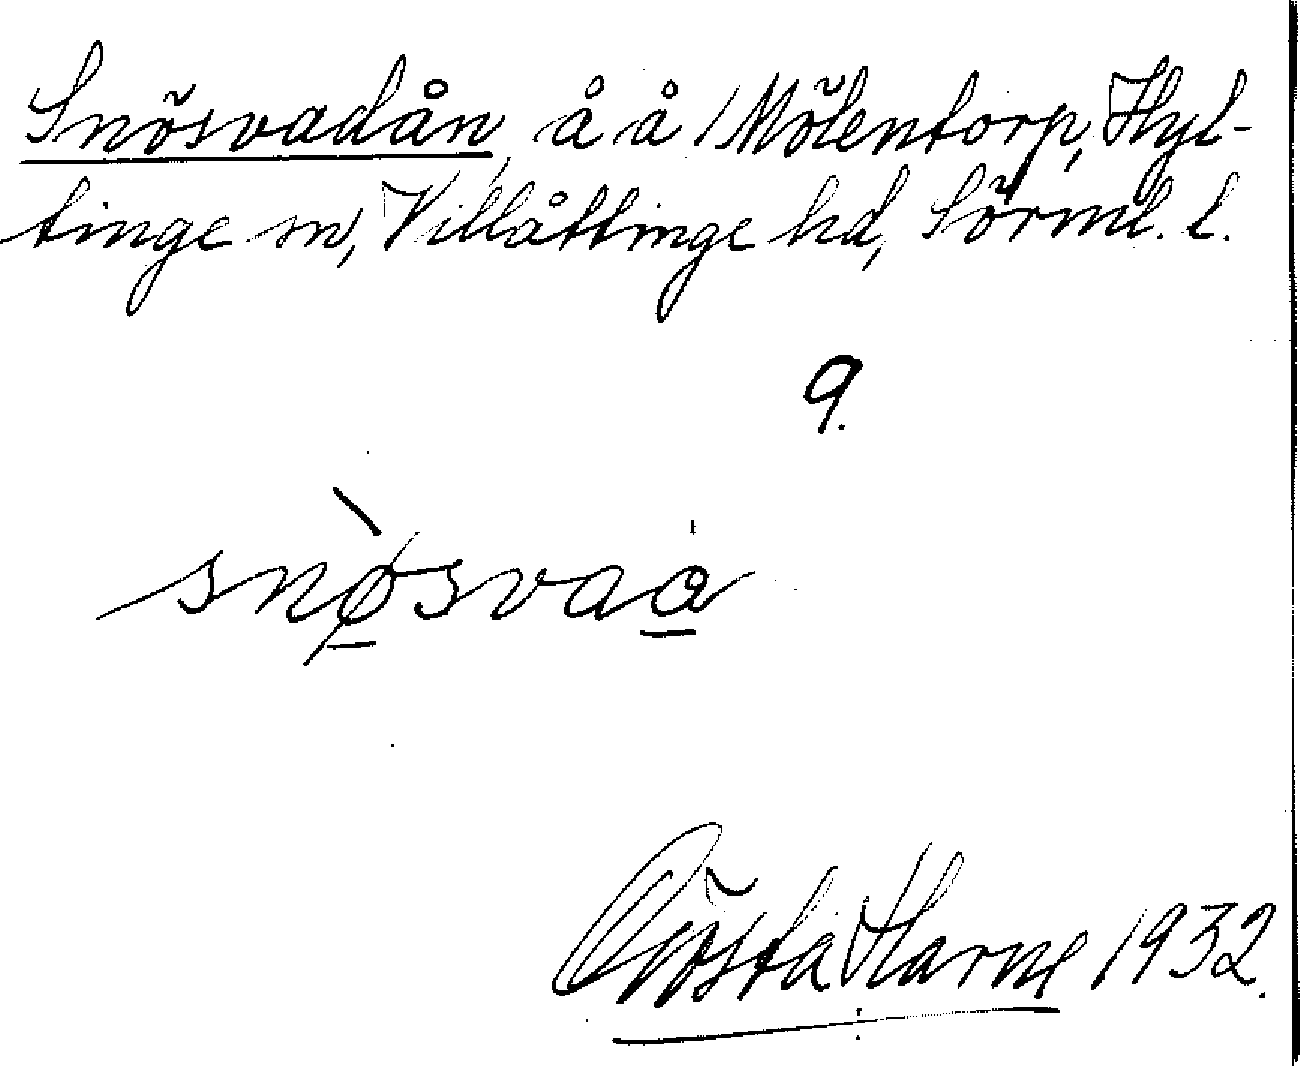 Snösvadån, å å Mölentorp, Hyl-
tinge sn, Villåttinge hd, Sörml. l.
9.
snø̀svaå
Gösta Harne 1932.